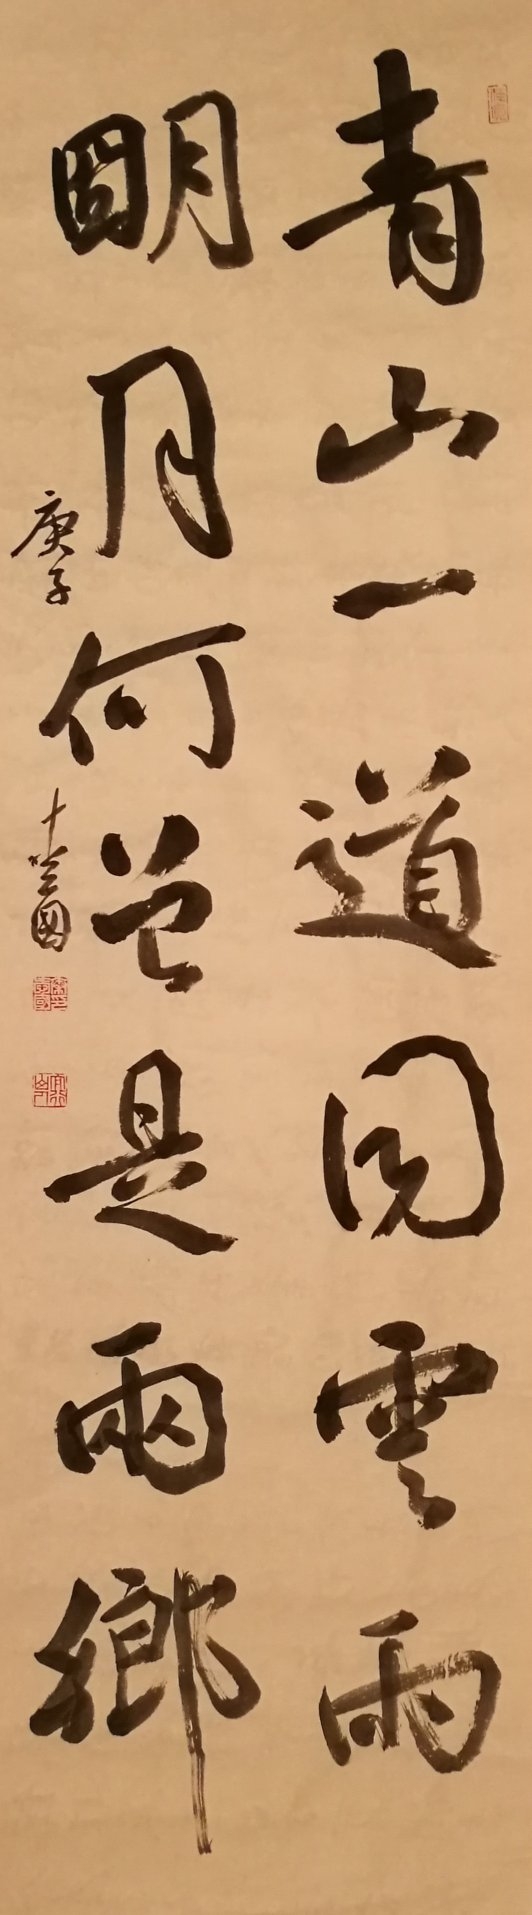 青山一道同雲雨
明月何曾是兩鄉
庚子
國